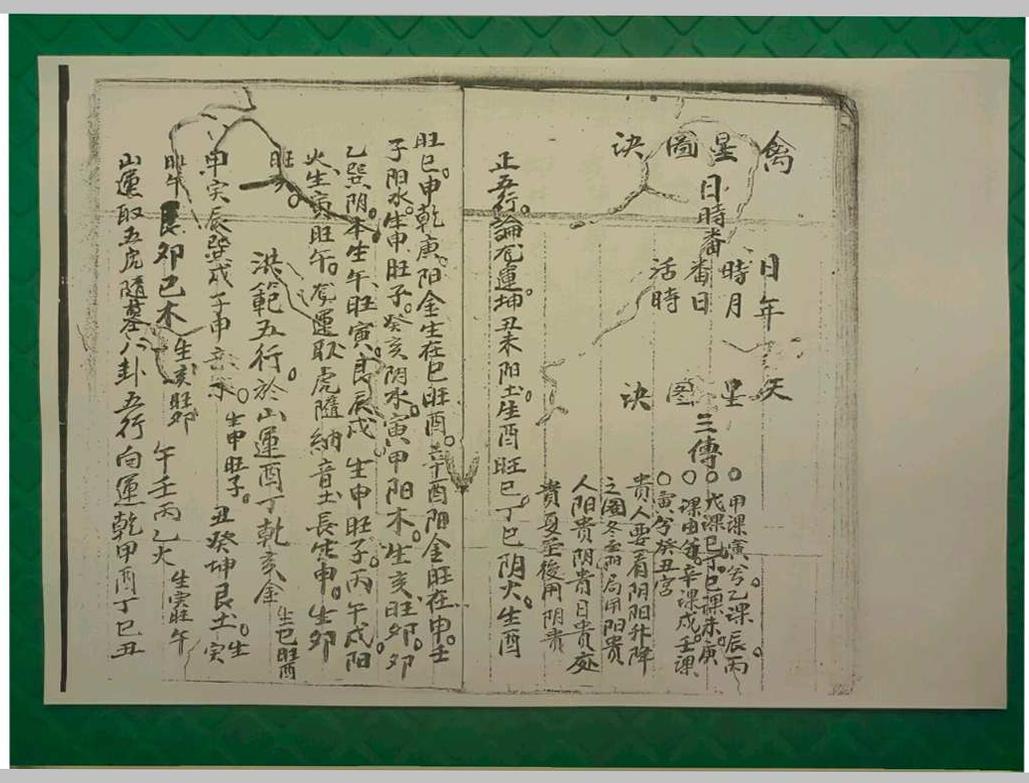 禽星圖决
日時番
日年
時月
番日
活時
天星圖决
三傳
甲課寅兮乙課辰丙
戊課巳丁巳課未庚
課由 辛課戌壬課
寅兮癸丑宮
貴人要看阴阳升降
之 冬至 局用阳贵
人阳贵阴贵日贵處
貴夏至後用阴贵
正五行論 運坤丑未阳土生酉旺巳丁巳阴火生酉
旺巳申乾庚阳金生在巳旺酉辛酉阳金旺在申壬
子阳水生申旺子癸亥阴水寅甲阳木生亥旺卯卯
乙巽阴本生午旺寅艮辰戌生申旺子丙午戌阳
火生寅旺午 運取虎隨納音土長生申生卯
旺亥
洪範五行於山運酉丁乾亥金生巳旺酉
甲寅辰巽戌子申辛水生申旺子丑癸坤艮土生寅
旺午艮卯巳木生亥旺卯午壬丙乙火生寅旺午
山運取五虎隨墓八卦五行向運乾甲酉丁巳丑